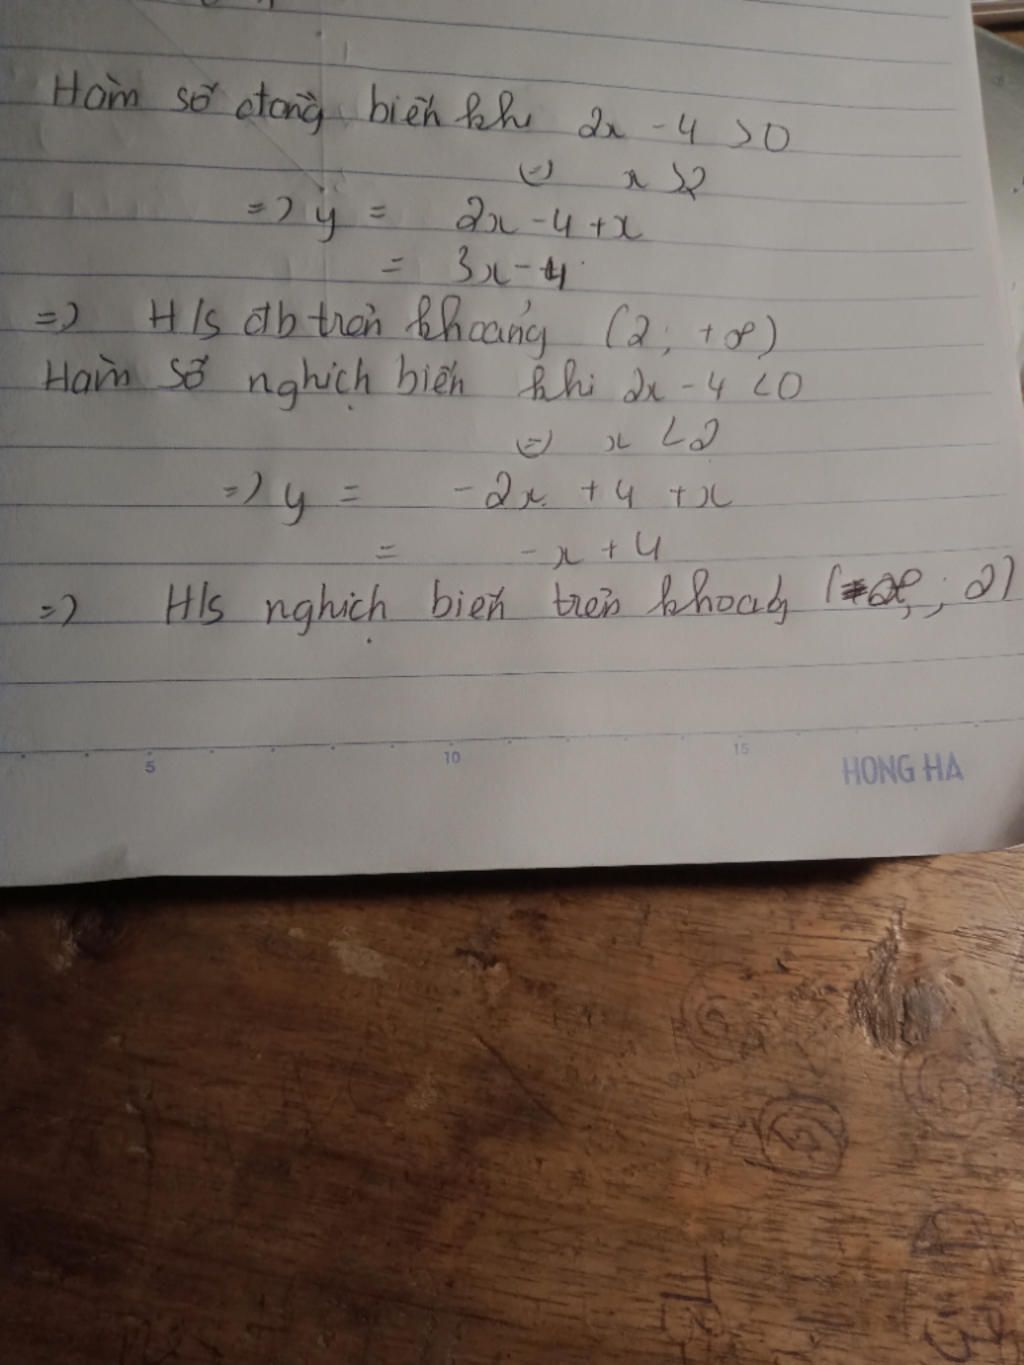 Hàm số đồng biến khi 2x - 4 > 0
(=) x > 2
=> y = 2x - 4 + x
= 3x - 4
=> H/s đb trên khoảng (2; +∞)
Hàm số nghịch biến khi 2x - 4 < 0
(=) x < 2
=> y = -2x + 4 + x
= -x + 4
=> H/s nghịch biến trên khoảng (-∞; 2)
5 10 15
HONG HA